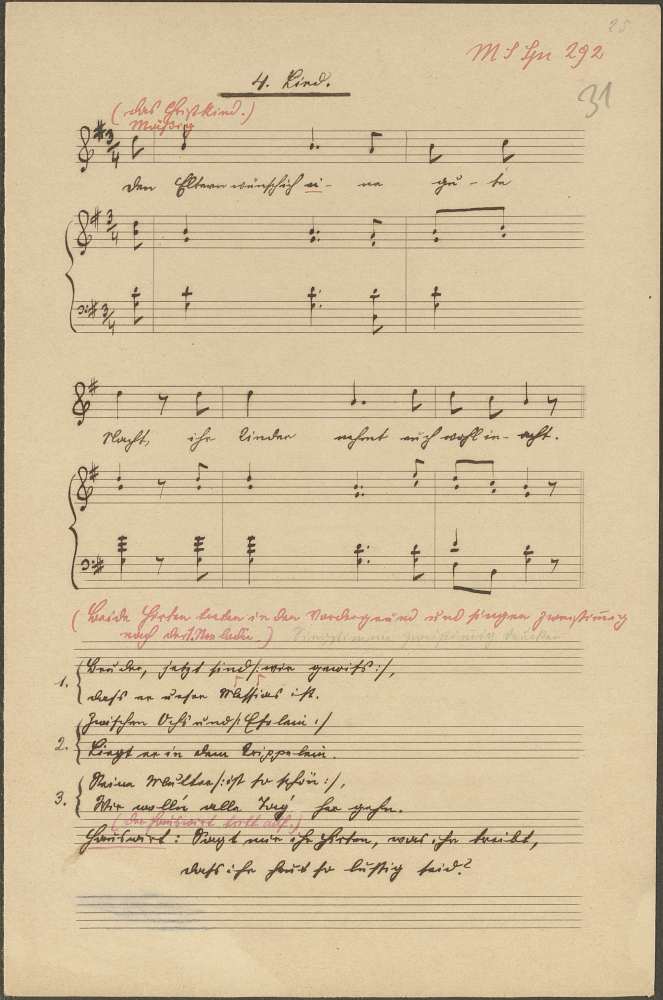 25
292
31
4. Lied.
(das Christkind.)
Mäßig
3/4
Den Eltern wünsch ich ei- ne gu- te
3/4
3/4
Nacht, ihr Kinder nehmt euch wohl in- acht.
(Beide Hirten treten in den Vordergrund und singen zweistimmig
nach der Melodie.) Singstimme zweistimmig
1. Bruder, jetzt sind /: wir gewiß :/,
daß er unser Messias ist.
2. Zwischen Ochs und /: Eselein :/
Liegt er in dem Krippelein.
3. Seine Mutter /: ist so schön :/,
Wir woll'n alle Tag' her gehn.
(Der Hauswirt tritt auf.)
Hauswirt: Sagt mir ihr Hirten, was ihr treibt,
daß ihr heut so lustig seid?